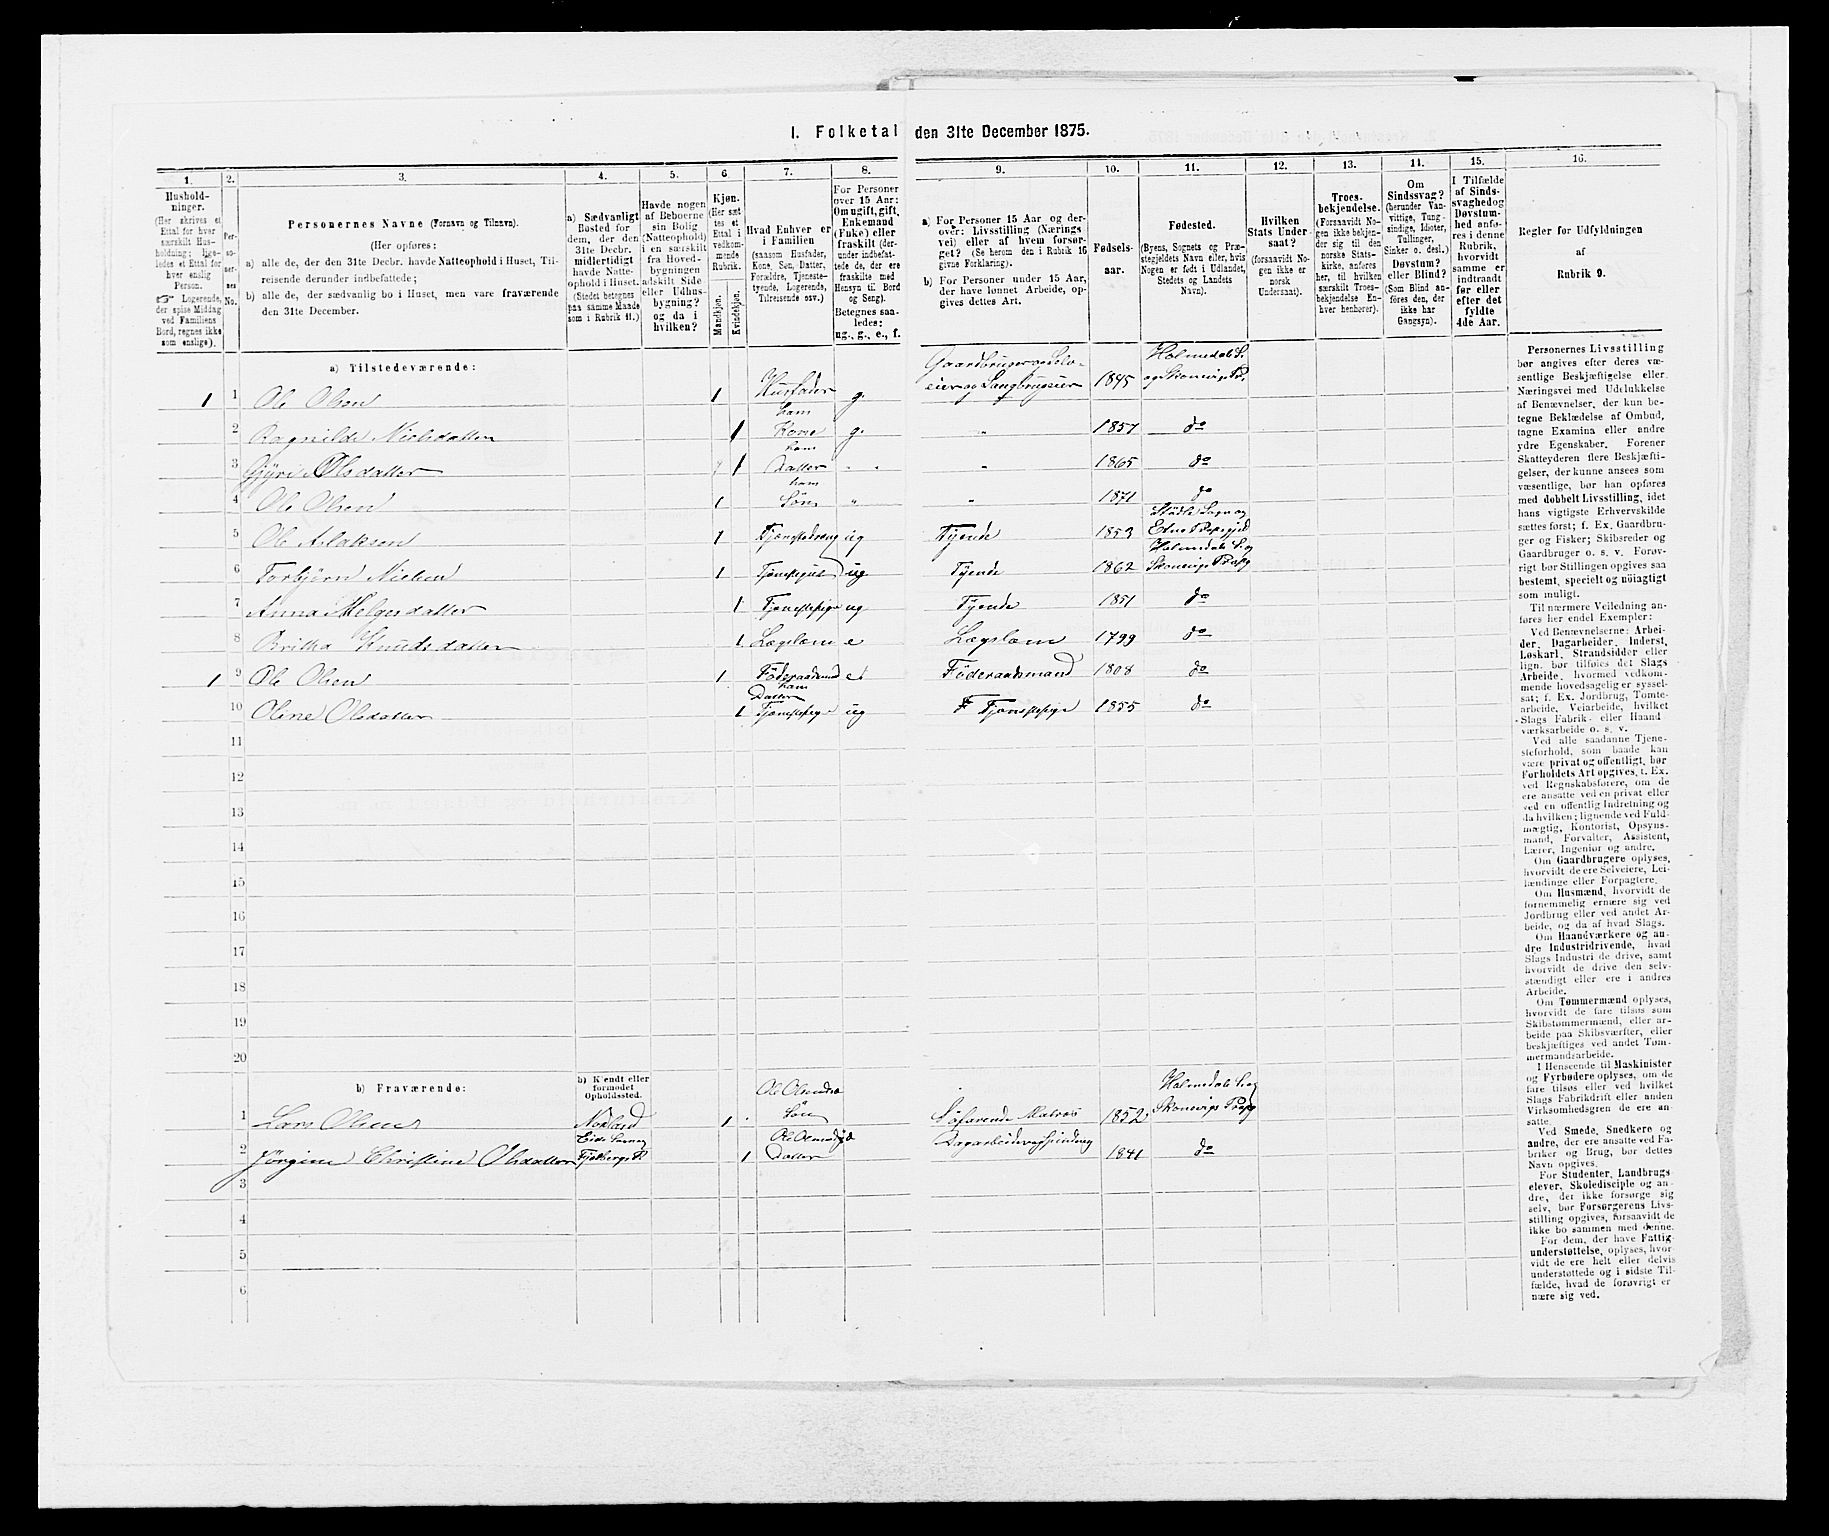 I. Folketal den 31te December 1875.
1. 2. 3. 4. 5. 6. 7. 8. 9. 10. 11. 12. 13. 14. 15. 16.
Hushold-
ninger.
(Her skrives et
Ettal for hver
særskilt Hus-
holdning; lige-
ledes et Ettal for
hver enslig
Person.
☞ Logerende,
der spise Middag
ved Familiens
Bord, regnes ikke
som enslige).
Per-
so-
ner-
nes
No.
Personernes Navne (Fornavn og Tilnavn).
(Her opføres:
a) alle de, der den 31te Decbr. havde Natteophold i Huset, Til-
reisende derunder indbefattede;
b) alle de, der sædvanlig bo i Huset, men vare fraværende
den 31te December.
a) Sædvanligt
Bosted for
dem, der den
31te Decbr.
midlertidigt
havde Natte-
ophold i Huset.
(Stedet betegnes
paa samme Maade
som i Rubrik 11.)
Havde nogen
af Beboerne
sin Bolig
(Natteophold)
i en særskilt
fra Hoved-
bygningen
adskilt Side
eller Udhus-
bygning?
og da i
hvilken?
Kjøn.
(Her sæt-
tes et
Ettal i
vedkom-
mende
Rubrik.
Mandkjøn.
Kvindekjøn.
Hvad Enhver er
i Familien
(saasom Husfader,
Kone, Søn, Datter,
Forældre, Tjeneste-
tyende, Logerende,
Tilreisende osv.)
For Personer
over 15 Aar:
Om ugift, gift,
Enkemand
(Enke) eller
fraskilt (der-
under indbefat-
tede de, der ere
fraskilte med
Hensyn til Bord
og Seng).
Betegnes saa-
ledes:
ug., g., e., f.
a) For Personer 15 Aar og der-
over: Livsstilling (Nærings-
vei) eller af hvem forsør-
get? (Se herom den i Rubrik 16
givne Forklaring).
b) For Personer under 15 Aar,
der have lønnet Arbeide, op-
gives dettes Art.
Fødsels-
aar.
Fødested.
(Byens, Sognets og Præ-
stegjeldets Navn eller, hvis
Nogen er født i Udlandet,
Stedets og Landets
Navn).
Hvilken
Stats Under-
saat?
(forsaavidt No-
gen ikke er
norsk
Undersaat).
Troes-
bekjendelse.
(Forsaavidt No-
gen ikke bekjen-
der sig til den
norske Stats-
kirke, anføres
her, til hvilken
særskilt Troes-
bekjendelse En-
hver henhører).
Om
Sindssvag?
(herunder Van-
vittige, Tung-
sindige, Idioter,
Tullinger,
Sinker o. desl.)
Døvstum?
eller Blind?
(Som Blind an-
føres den, der
ikke har
Gangsyn).
I Tilfælde
af Sinds-
svaghed og
Døvstum-
hed anfø-
res i denne
Rubrik,
hvorvidt
samme er
indtraadt
før eller
efter det
fyldte
4de Aar.
Regler for Udfyldningen
af
Rubrik 9.
a) Tilstedeværende:
1 1 Ole Olsen 1 Husfader g. Gaardbruger og Selv-
eier og 1845 Holmedals S. og Skonevigs P.
2 Ragnilde Nielsdatter 1 hans Kone g. " 1857 do
3 Gjyri Olsdatter 1 hans Datter " " 1865 do
4 Ole Olsen 1 hans Søn " " 1871 do
5 Ole Aslaksen 1 Tjenestedreng ug Tyende 1853 Sogn og
Etne
6 Torbjørn Nielsen 1 ug Tyende 1862 Holmedals S. og
Skonevigs
7 Anna Helgesdatter 1 Tjenestepige ug Tyende 1851 do
8 Britha Knudsdatter 1 Lægslem e Lægslem 1799 do
1 9 Ole Olsen 1 Föderaadsmand e Föderaadsmand 1808 do
10 Oline Olsdatter 1 hans Datter Tjenestepige ug Tjenestepige 1855 do
11
12
13
14
15
16
17
18
19
20
b) Fraværende:
b) Kjendt eller
formodet
Opholdssted.
1 Lars Olsen Norland 1 Søn Søfarende Matros 1852 Holmedals S. og
Skonevigs
2 Jörgine Christine Olsdatter Eids 1 Datter 1841 do
3
4
5
6
Personernes Livsstilling
bør angives efter deres væ-
sentlige Beskjæftigelse eller
Næringsvei med Udelukkelse
af Benævnelser, der kun be-
tegne Beklædelse af Ombud,
tagne Examina eller andre
ydre Egenskaber. Forener
Skatteyderen flere Beskjæfti-
gelser, der kunne ansees som
væsentlige, bør han opføres
med dobbelt Livsstilling, idet
hans vigtigste Erhvervskilde
sættes først; f. Ex. Gaardbru-
ger og Fisker; Skibsreder og
Gaardbruger o. s. v. Forøv-
rigt bør Stillingen opgives saa
bestemt, specielt og nøiagtigt
som muligt.
Til nærmere Veiledning an-
føres her endel Exempler:
Ved Benævnelserne: Arbei-
der, Dagarbeider, Inderst,
Løskarl, Strandsidder eller
lign. bør tilføies det Slags
Arbeide, hvormed vedkom-
mende hovedsagelig er syssel-
sat; f. Ex. Jordbrug, Tomte-
arbeide, Veiarbeide, hvilket
Slags Fabrik- eller Haand-
værksarbeide o. s. v.
Ved alle saadanne Tjene-
steforhold, som baade kan
være privat og offentligt, bør
Forholdets Art opgives, t. Ex.
ved Regnskabsførere, om de
ere ansatte ved en privat eller
ved en offentlig Indretning og
da hvilken; lignende ved Fuld-
mægtig, Kontorist, Opsyns-
mand, Forvalter, Assistent,
Lærer, Ingeniør og andre.
Om Gaardbrugere oplyses,
hvorvidt de ere Selveiere, Lei-
lændinge eller Forpagtere.
Om Husmænd, hvorvidt de
fornemmelig ernære sig ved
Jordbrug eller ved andet Ar-
beide, og da af hvad Slags.
Om Haandværkere og an-
dre Industridrivende, hvad
Slags Industri de drive, samt
hvorvidt de drive den selv-
stændigt eller ere i andres
Arbeide.
Om Tømmermænd oplyses,
hvorvidt de fare tilsøs som
Skibstømmermænd, eller ar-
beide paa Skibsværfter, eller
beskjæftiges ved andet Tøm-
mermandsarbeide.
I Henseende til Maskinister
og Fyrbødere oplyses, om de
fare tilsøs eller ved hvilket
Slags Fabrikdrift eller anden
Virksomhedsgren de ere an-
satte.
Ved Smede, Snedkere og
andre, der ere ansatte ved Fa-
briker og Brug, bør dettes
Navn opgives.
For Studenter, Landbrugs-
elever, Skoledisciple og an-
dre, der ikke forsørge sig
selv, bør Forsørgerens Livs-
stilling opgives, forsaavidt de
ikke bo sammen med denne.
For dem, der have Fattig-
understøttelse, oplyses, hvor-
vidt de ere helt eller delvis
understøttede og i sidste Til-
fælde, hvad de forøvrigt er
nære sig ved.